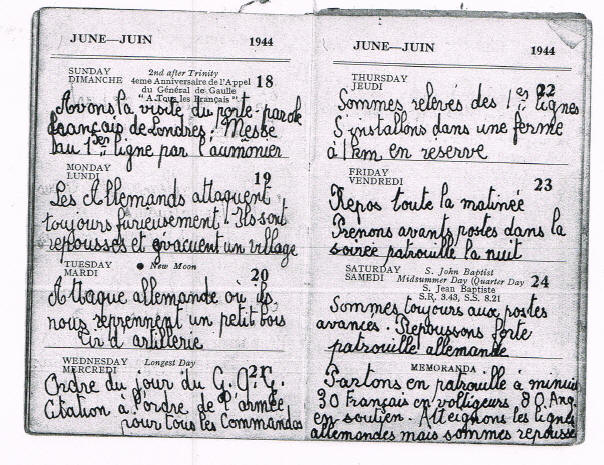 JUNE—JUIN 1944
SUNDAY
DIMANCHE
2nd after Trinity
4eme Anniversaire de l'Appel
du Général de Gaulle
"A Tous les Français"
18
Avons la visite du porte-parole
français de Londres. Messe
au 1er ligne par l'aumônier
MONDAY
LUNDI
19
Les Allemands attaquent
toujours furieusement. Ils sont
repoussés et évacuent un village
TUESDAY
MARDI
● New Moon
20
Attaque allemande où ils
nous reprennent un petit bois
Tir d'artillerie
WEDNESDAY
MERCREDI
Longest Day
21
Ordre du jour du G.Q.G.
Citation à l'ordre de l'armée
pour tous les Commandos
JUNE—JUIN 1944
THURSDAY
JEUDI
22
Sommes relevés des 1ères lignes
S'installons dans une ferme
à 1 km en reserve
FRIDAY
VENDREDI
23
Repos toute la matinée
Prenons avants postes dans la
soirée patrouille la nuit
SATURDAY
SAMEDI
S. John Baptist
Midsummer Day (Quarter Day
S. Jean Baptiste
S.R. 3.43, S.S. 8.21
24
Sommes toujours aux postes
avancés. Repoussons forte
patrouille allemande
MEMORANDA
Partons en patrouille à minuit
30 Français en voltigeurs. 80 Ang.
en soutien. Atteignons les lignes
allemandes mais sommes repoussé